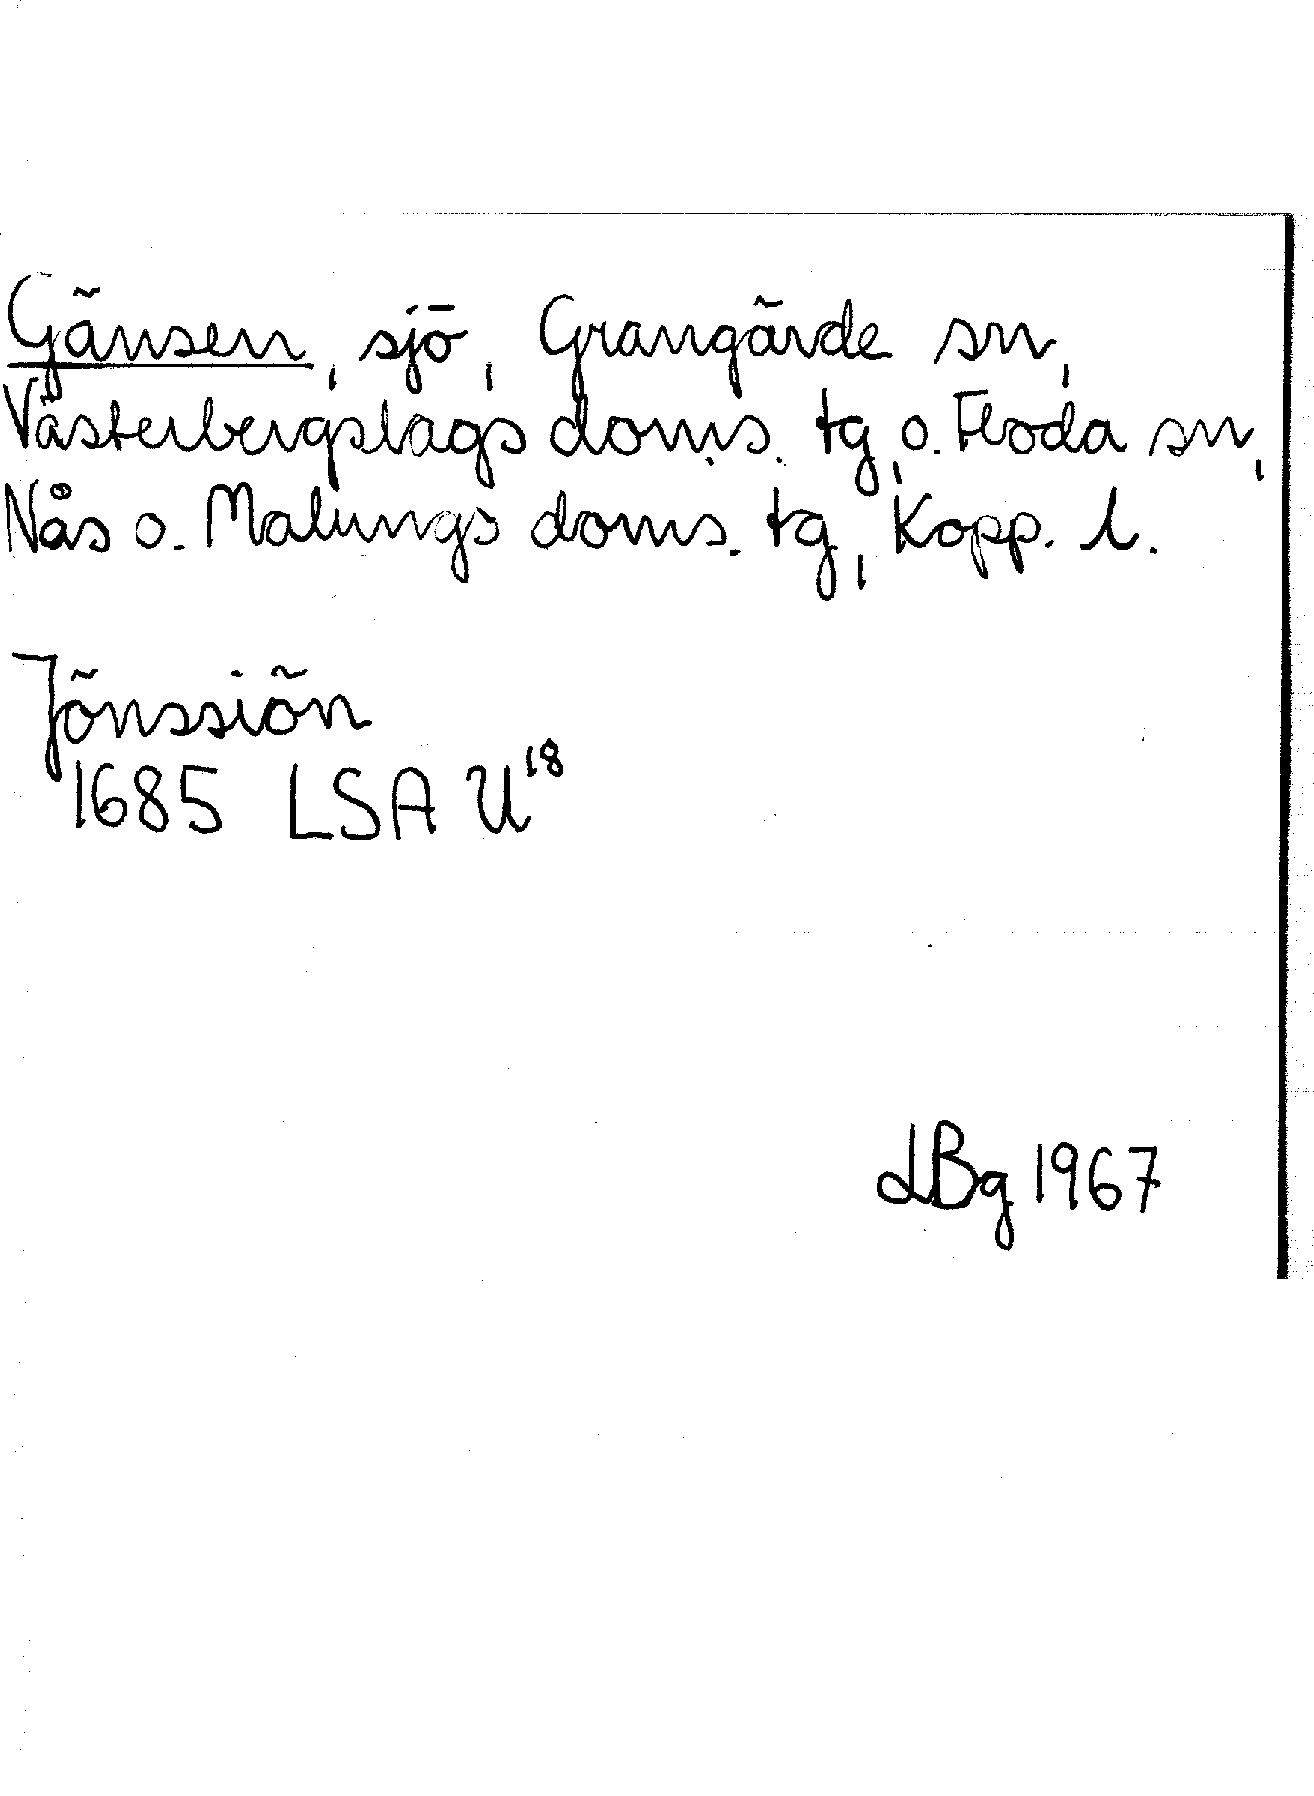 Gänsen, sjö, Grangärde sn,
Västerbergslags doms. tg, o. Floda sn,
Nås o. Malungs doms. tg, Kopp. l.
Jönssiön
1685 LSA U¹⁸
LBg 1967